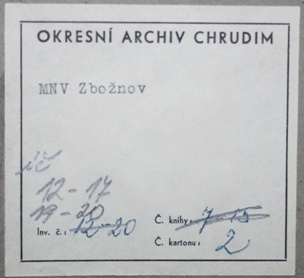 OKRESNÍ ARCHIV CHRUDIM
MNV Zbožnov
ič
12-17
19-20
Inv. č.: 12-20
Č. knihy: 7-15
Č. kartonu: 2